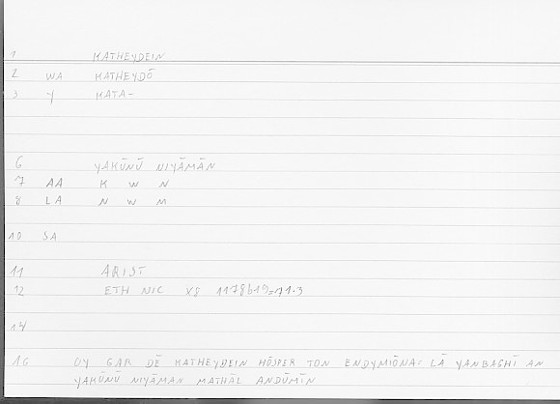 1 KATHEYDEIN
2 WA KATHEYDŌ
3 Y KATA-
6 YAKŪNŪ NIYĀMĀN
7 AA K W N
8 LA N W M
10 SA
11 ARIST
12 ETH NIC X8 1178b19=11.3
14
16 OY GAR DĒ KATHEYDEIN HŌSPER TON ENDYMIŌNA: LĀ YANBAGHĪ AN
YAKŪNŪ NIYĀMAN MATHĀL ANDŪMĪN